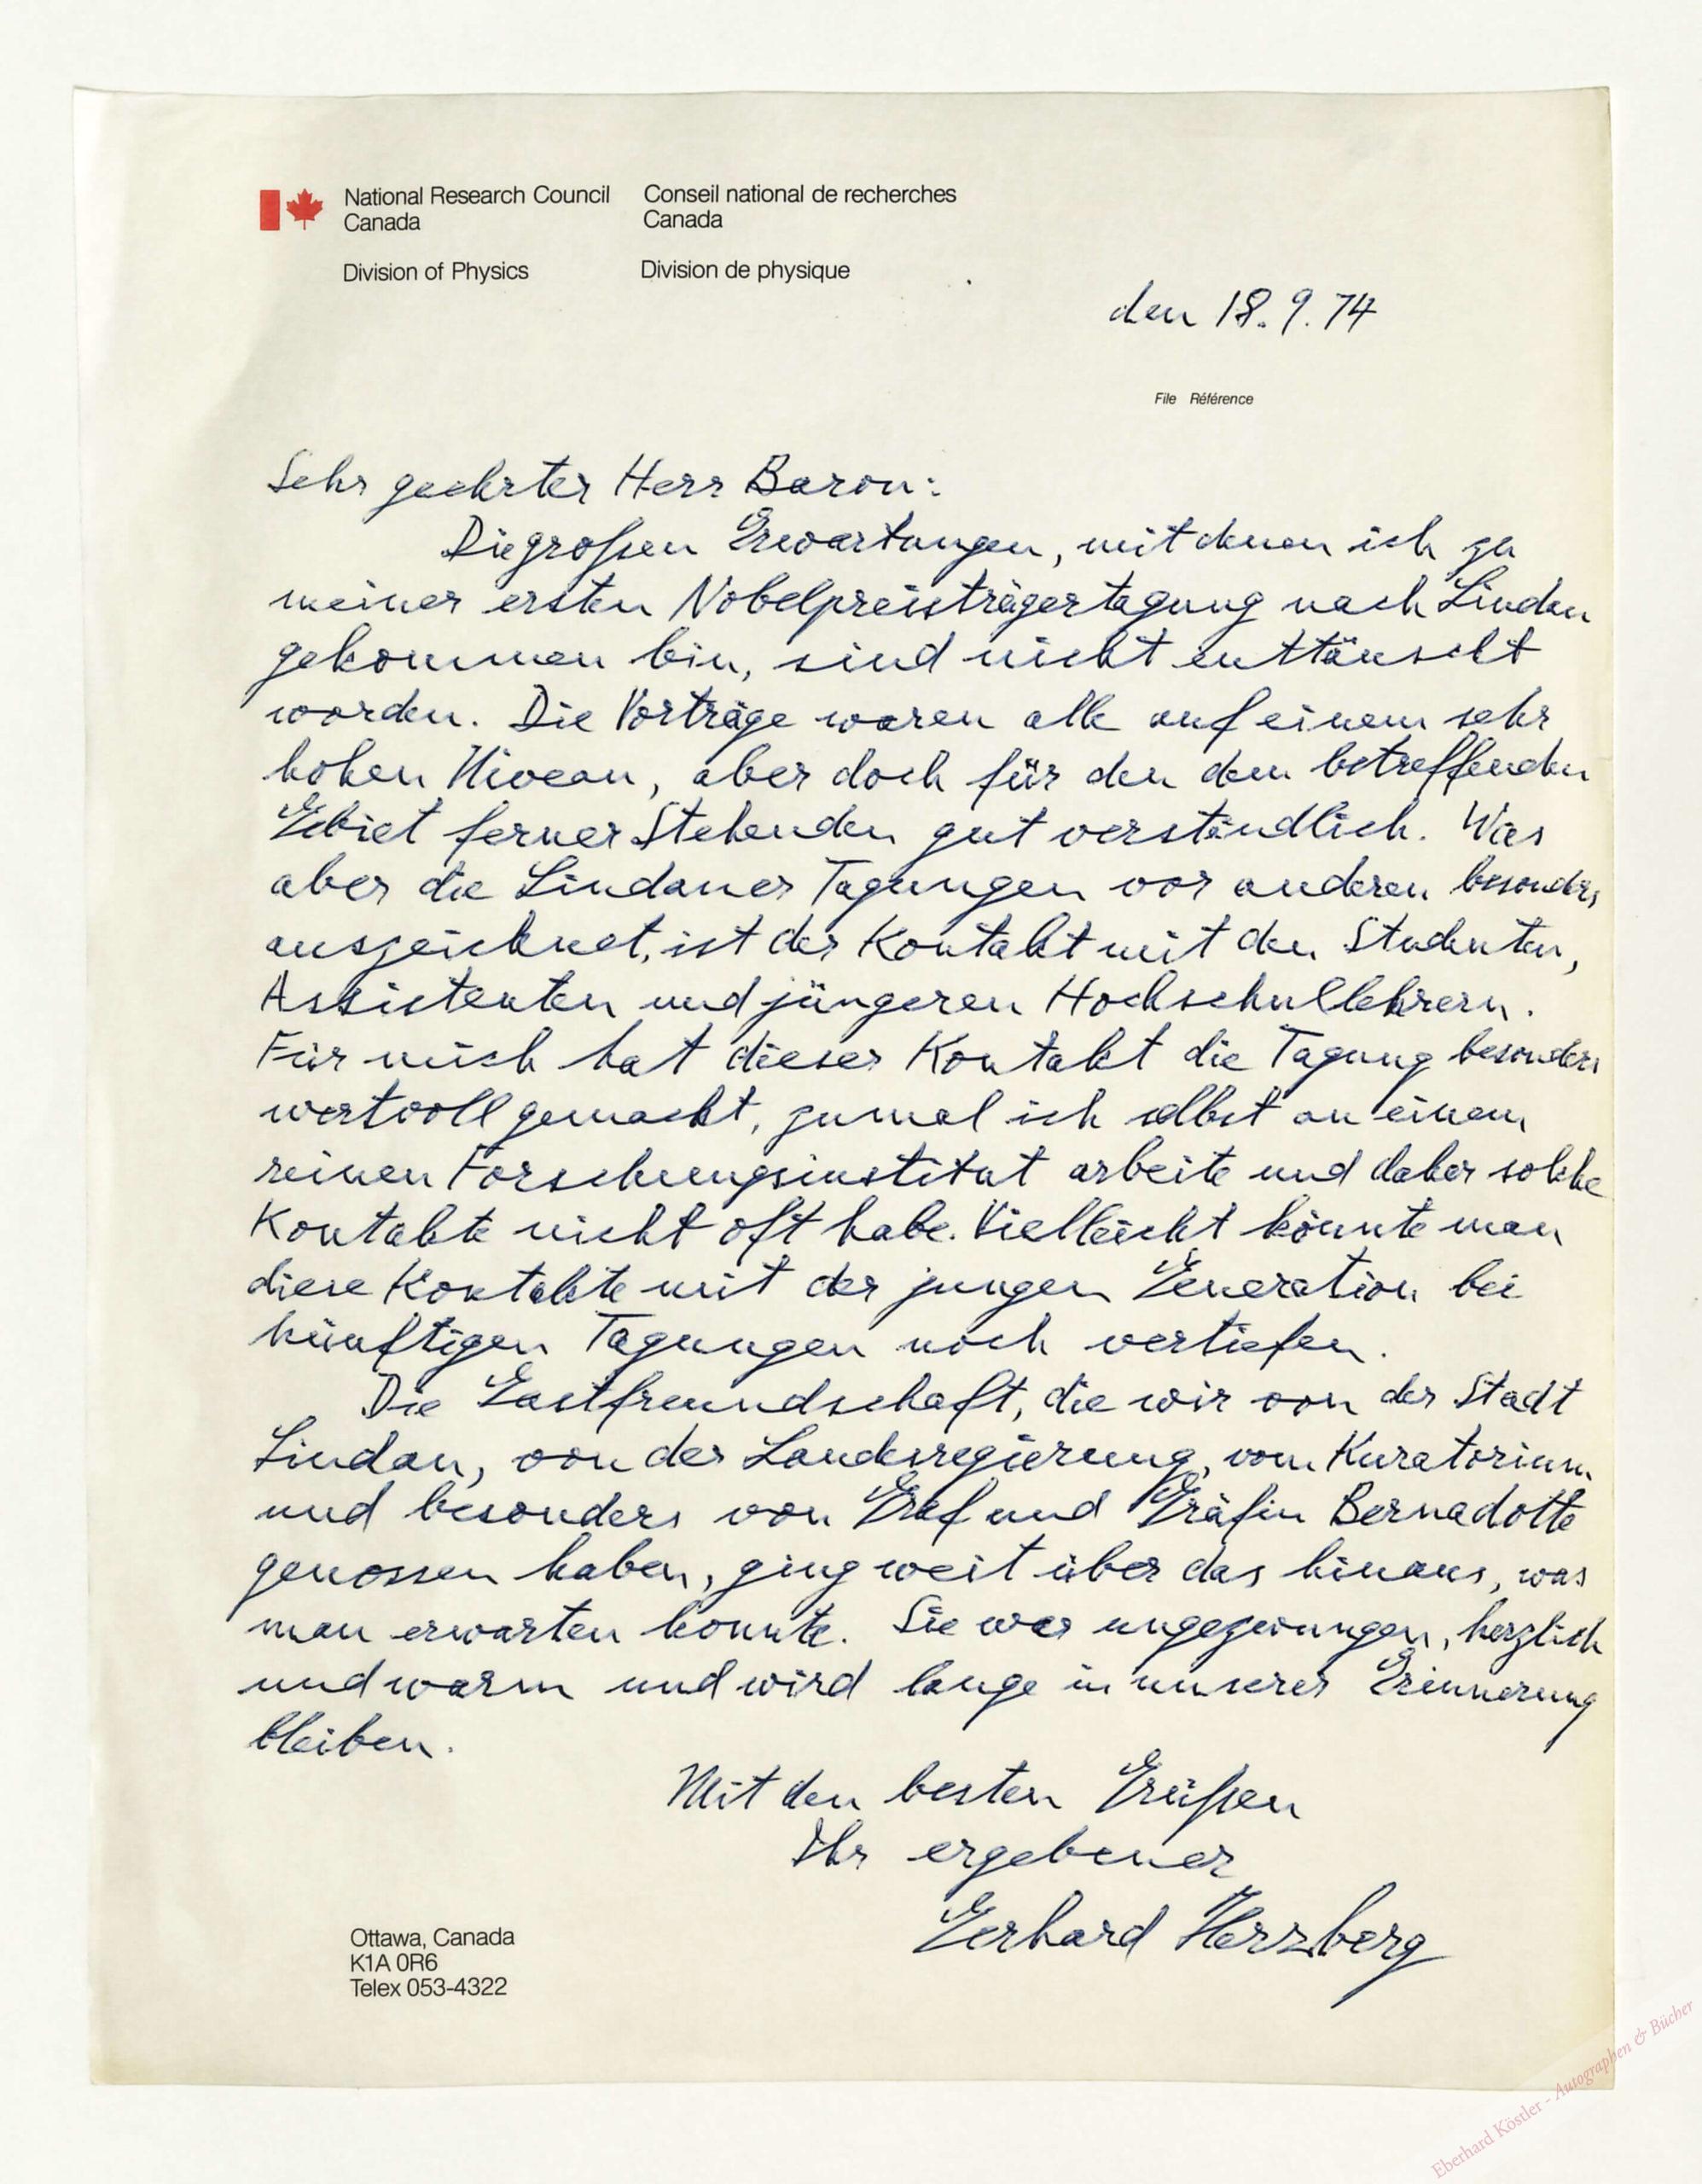 National Research Council Canada
Conseil national de recherches Canada
Division of Physics
Division de physique
den 18. 9. 74
File Référence
Sehr geehrter Herr Baron:
Die großen Erwartungen, mit denen ich zu
meiner ersten Nobelpreisträgertagung nach Lindau
gekommen bin, sind nicht enttäuscht
worden. Die Vorträge waren alle auf einem sehr
hohen Niveau, aber doch für den dem betreffenden
Gebiet ferner Stehenden gut verständlich. Was
aber die Lindauer Tagungen vor anderen besonders
auszeichnet, ist der Kontakt mit den Studenten,
Assistenten und jüngeren Hochschullehrern.
Für mich hat dieser Kontakt die Tagung besonders
wertvoll gemacht, zumal ich selbst an einem
reinen Forschungsinstitut arbeite und daher solche
Kontakte nicht oft habe. Vielleicht könnte man
diese Kontakte mit der jungen Generation bei
künftigen Tagungen noch vertiefen.
Die Gastfreundschaft, die wir von der Stadt
Lindau, von der Landesregierung, vom Kuratorium
und besonders von Graf und Gräfin Bernadotte
genossen haben, ging weit über das hinaus, was
man erwarten konnte. Sie war ungezwungen, herzlich
und warm und wird lange in unserer Erinnerung
bleiben.
Mit den besten Grüßen
Ihr ergebener
Gerhard Herzberg
Ottawa, Canada
K1A 0R6
Telex 053-4322
Eberhard Köstler - Autographen & Bücher